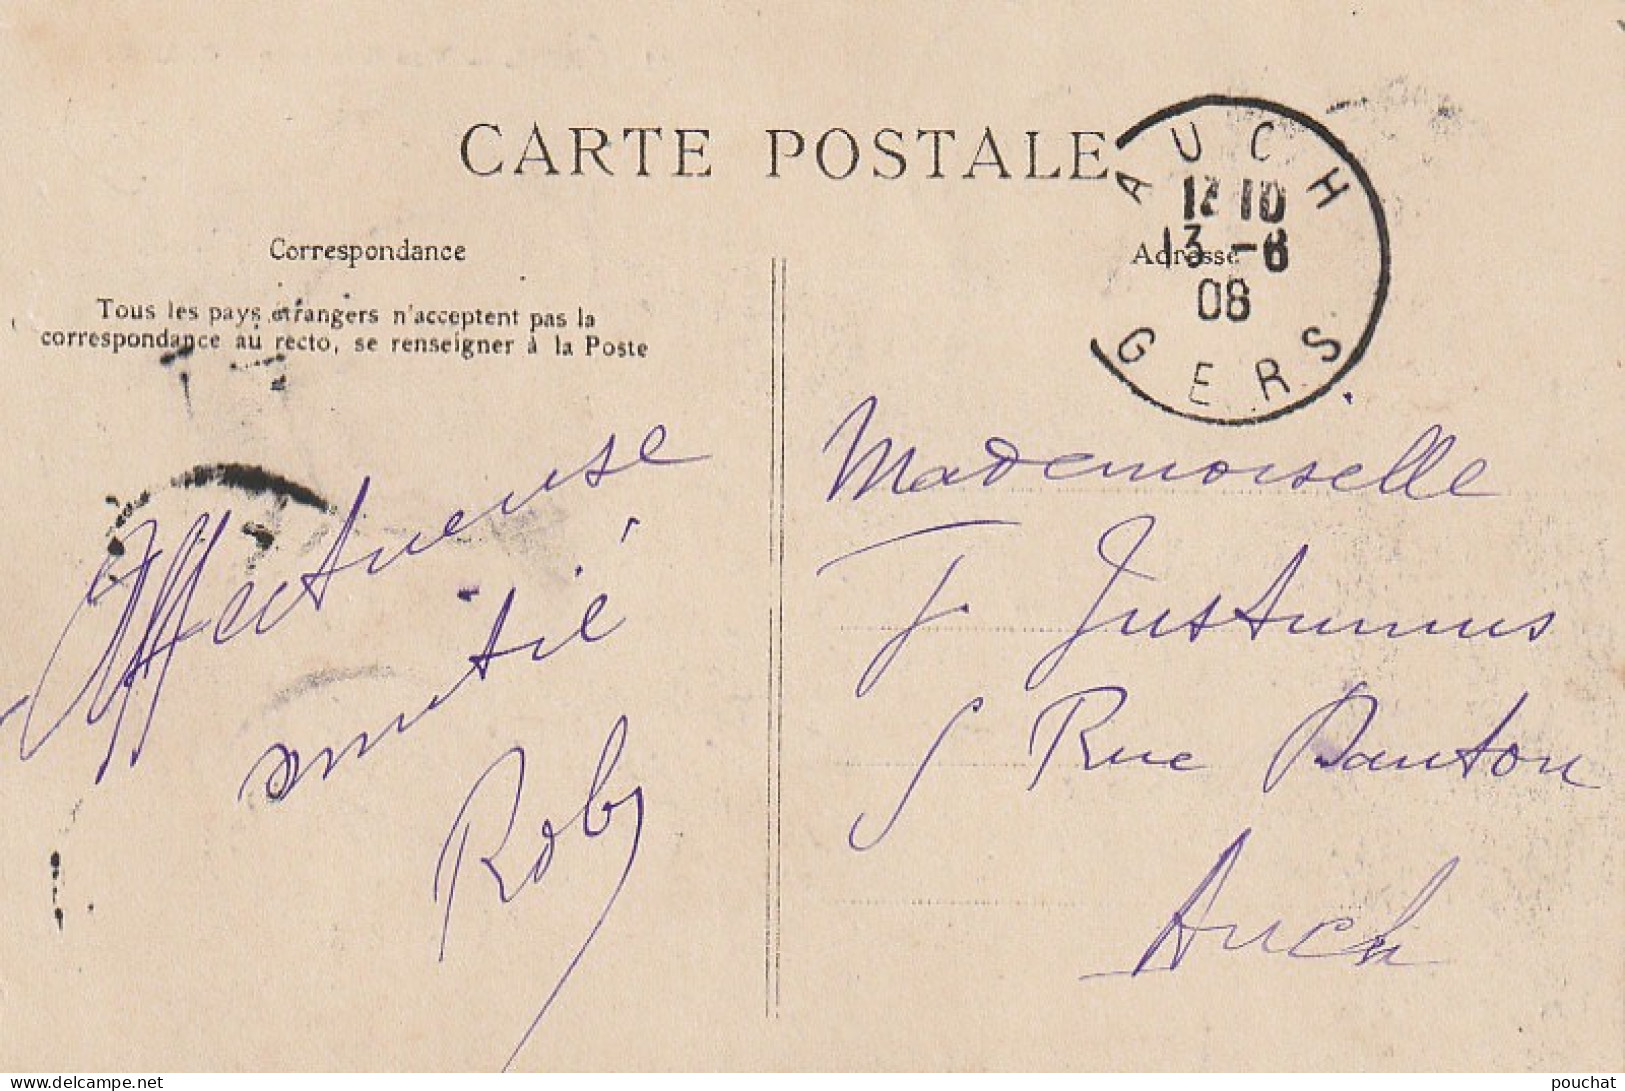 CARTE POSTALE
Correspondance
Tous les pays étrangers n'acceptent pas la
correspondance au recto, se renseigner à la Poste
Affectueuse
amitié
Roby
Adresse
AUCH
10
13 -6
08
GERS
Mademoiselle
J. Justumus
5 Rue Danton
Auch
www.delcampe.net
pouchat